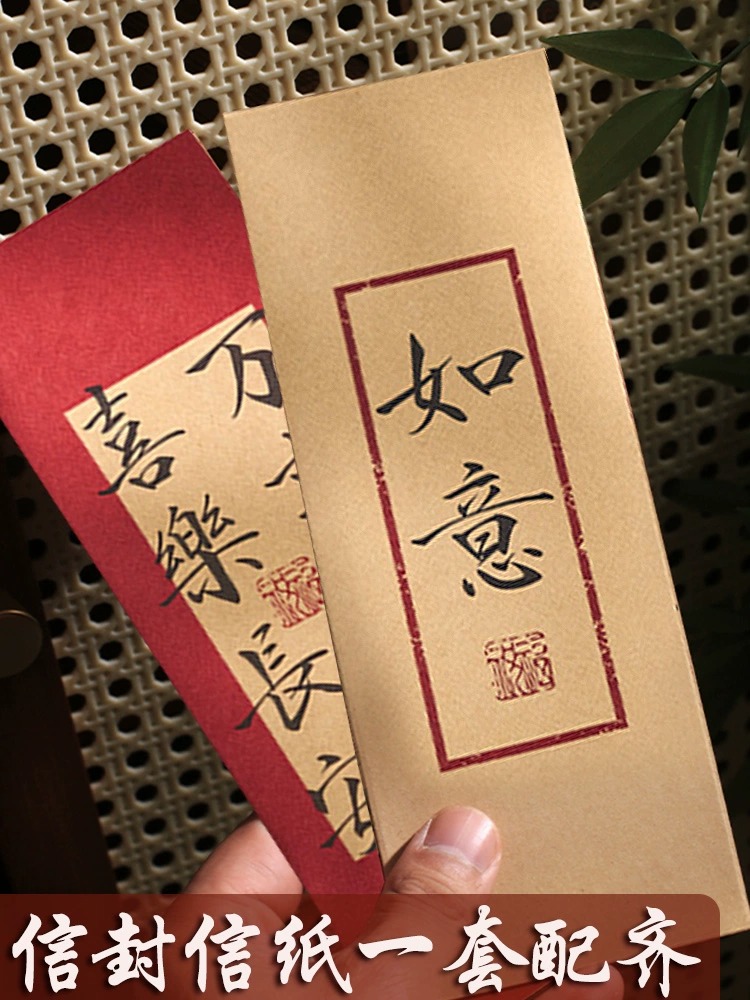 如意
喜樂長安
万
信封信纸一套配齐